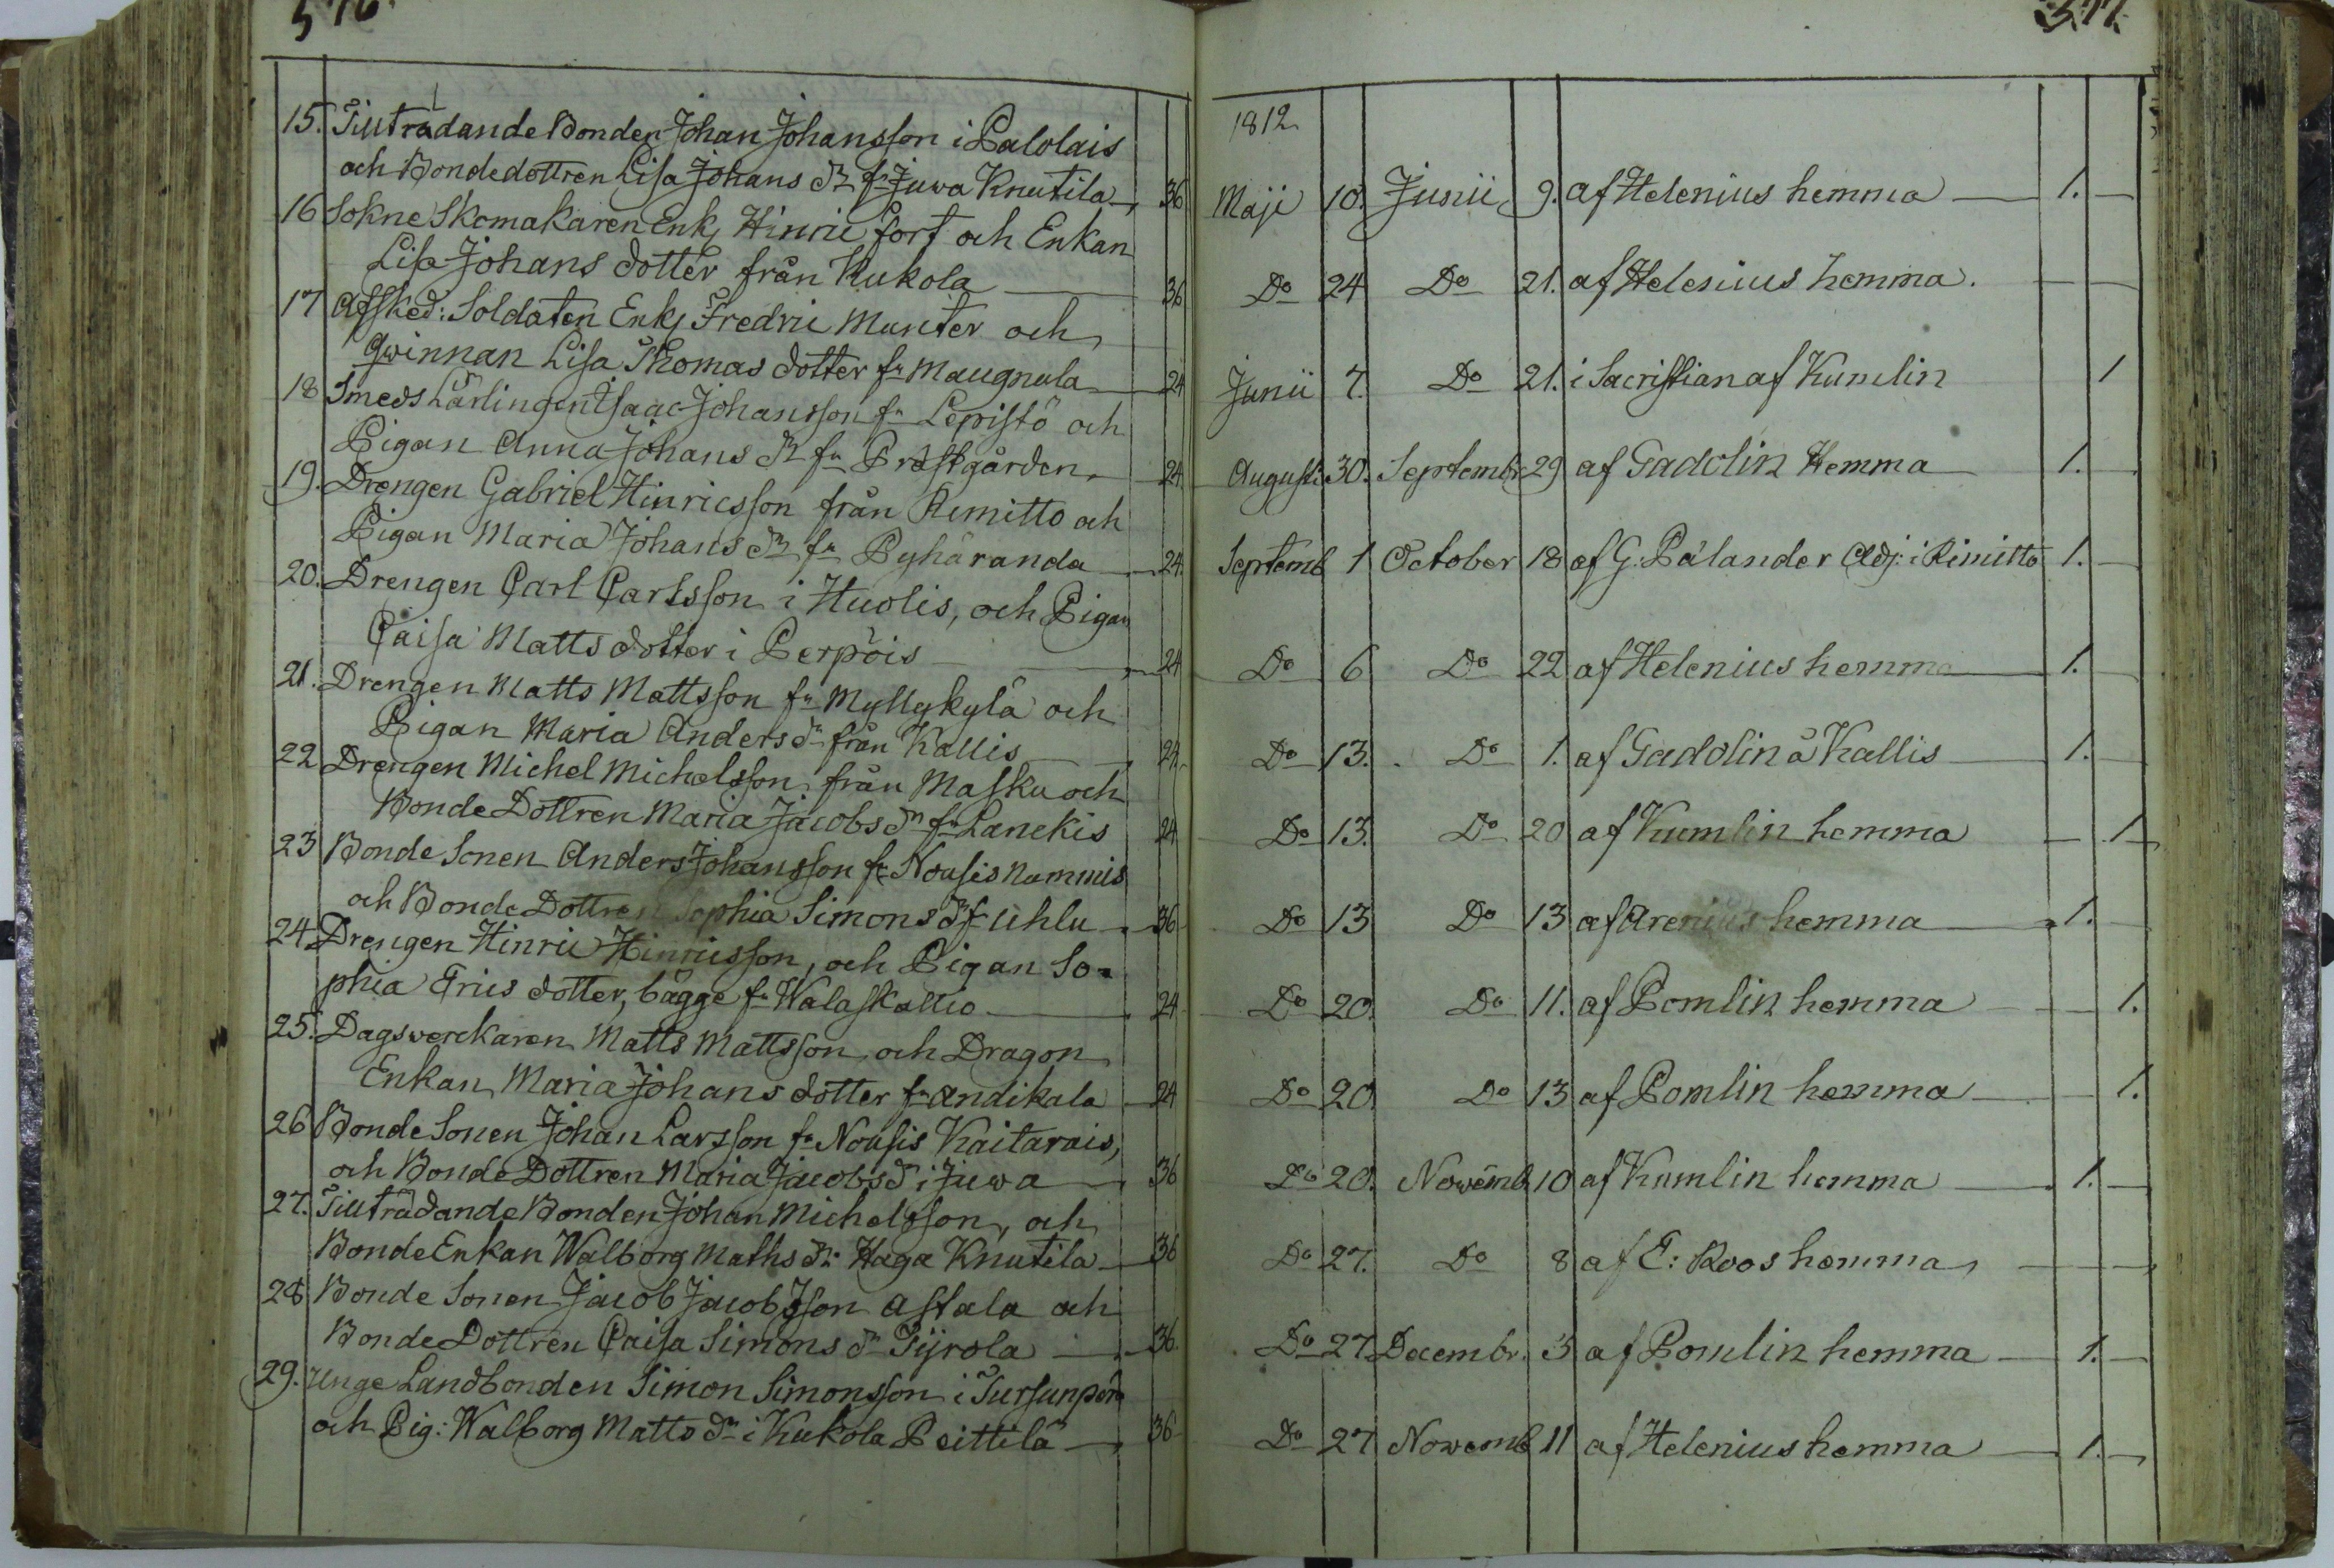 576.
15. Tillträdande Bonden Johan Johansson i Palolais
och Bondedottren Lisa Johans dr fr Juwa Knutila 36
16 Sokne Skomakaren Enkj Hinric fort och Enkan
Lisa Johans dotter från Kukola 36
17 Afsked: Soldaten Enkj Fredric Munter och
Qwinnan Lisa Thomas dotter fr Maugnula 24
18 Smeds Lärlingen Isaac Johansson fr Lepistö och
Pigan Anna Johans dr fr Prestgården 24
19. Drengen Gabriel Hinricsson från Remitto och
Pigan Maria Johans dr fr Pyhäranda 24.
20. Drengen Carl Carlsson i Huolis, och Pigan
Caisa Matts dotter i Perpöis 24
21. Drengen Matts Mattsson fr Myllykylä och
Pigan Maria Anders dr från Kallis 24.
22 Drengen Michel Michelsson från Masku och
Bonde Dottren Maria Jacobs dr fr Lanekis 24
23 Bonde Sonen Anders Johansson fr Nousis Nummis
och Bonde Dottren Sophia Simons dr f Uhlu 36
24 Drengen Hinric Hinricsson, och Pigan So-
phia Erics dotter, bägge fr Walaskallio 24
25. Dagswerckaren Matts Mattsson och Dragon
Enkan Maria Johans dotter fr Andikala 24
26 Bonde Sonen Johan Larsson fr Nousis Kaitarais,
och Bonde Dottren Maria Jacobs d i Juwa 36
27. Tillträdande Bonden Johan Michelsson, och
Bonde Enkan Walborg Maths dr Haga Knutila 36
28 Bonde Sonen Jacob Jacobsson Astala och
Bonde Dottren Caisa Simons dr Tijrola 36.
29. Unge Landbonden Simon Simonsson i Tursunperä
och Pig: Walborg Matts dr i Kukola Peittilä 36
577.
1812
Maji 10. Junii 9. af Helenius hemma 1.
Do 24 Do 21. af Helenius hemma.
Junii 7. Do 21. i Sacristian af Kumlin 1
Augusti 30. Septembr 29 af Gadolin Hemma 1.
Septemb 1 October 18 af G. Pålander Adj: i Rimitto 1.
Do 6 Do 22 af Helenius hemma 1.
Do 13. Do 1. af Gadolin å Kallis 1.
Do 13. Do 20 af Kumlin hemma 1.
Do 13 Do 13 af Arenius hemma 1.
Do 20. Do 11. af Pomlin hemma 1.
Do 20. Do 13 af Pomlin hemma 1.
Do 20. Nowemb 10 af Kumlin hemma 1.
Do 27. Do 8 af E: Roos hemma
Do 27. Decembr. 3 af Pomlin hemma 1.
Do 27 Nowemb 11 af Helenius hemma 1.